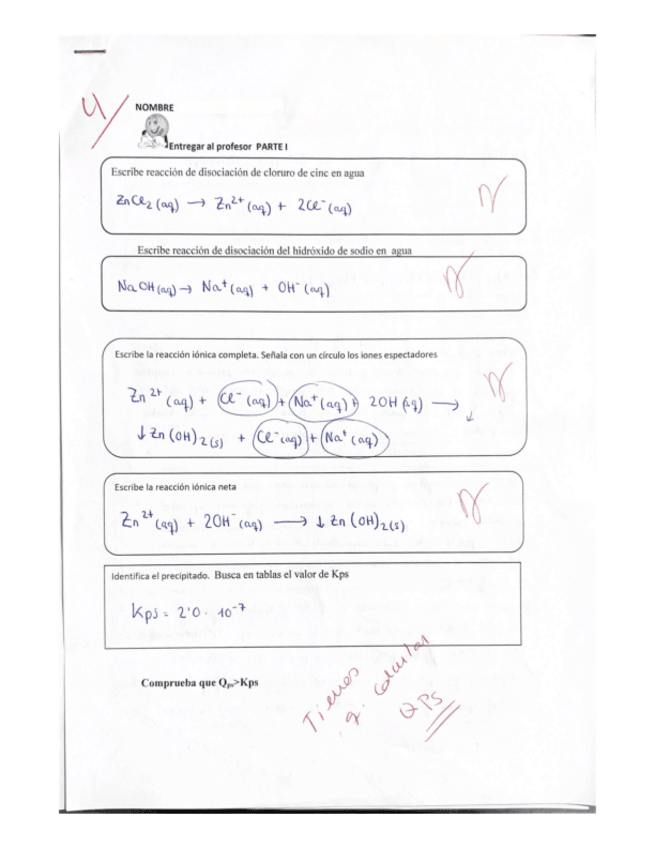 4/
NOMBRE
Entregar al profesor PARTE I
Escribe reacción de disociación de cloruro de cinc en agua
ZnCl₂ (aq) → Zn²⁺ (aq) + 2Cl⁻ (aq)
Escribe reacción de disociación del hidróxido de sodio en agua
NaOH (aq) → Na⁺ (aq) + OH⁻ (aq)
Escribe la reacción iónica completa. Señala con un círculo los iones espectadores
Zn²⁺ (aq) + Cl⁻ (aq) + Na⁺ (aq) + 2OH (aq) → ↓
↓ Zn(OH)₂ (s) + Cl⁻ (aq) + Na⁺ (aq)
Escribe la reacción iónica neta
Zn²⁺ (aq) + 2OH⁻ (aq) → ↓ Zn(OH)₂ (s)
Identifica el precipitado. Busca en tablas el valor de Kps
Kps = 2'0 · 10⁻⁷
Comprueba que Qₚₛ>Kps
Tienes
q. calcular
QPS